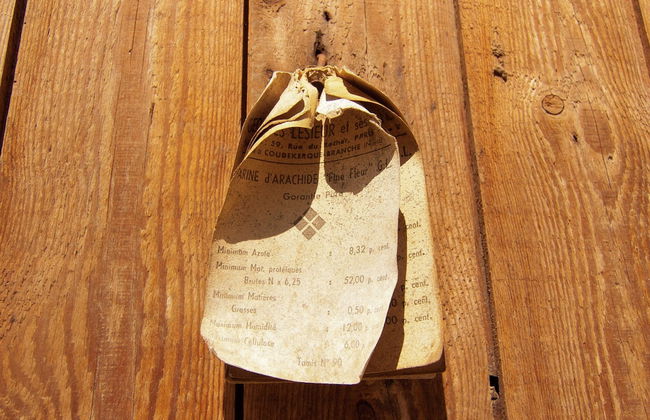 LESIEUR et ses
59, Rue du Rocher, PARIS
COUDEKERQUE-BRANCHE
ARINE d'ARACHIDE "Fine Fleur" G.
Garantie
Minimum Azote : 8,32 p. cent.
Minimum Mat. protéiques
Brutes N x 6,25 : 52,00 p. cent.
Minimum Matières
Grasses : 0,50 p. cent.
Maximum Humidité : 12,00 p. cent
Maximum Cellulose : 6,00 p.
Tamis N° 90
cent.
cent.
p. cent.
p. cent.